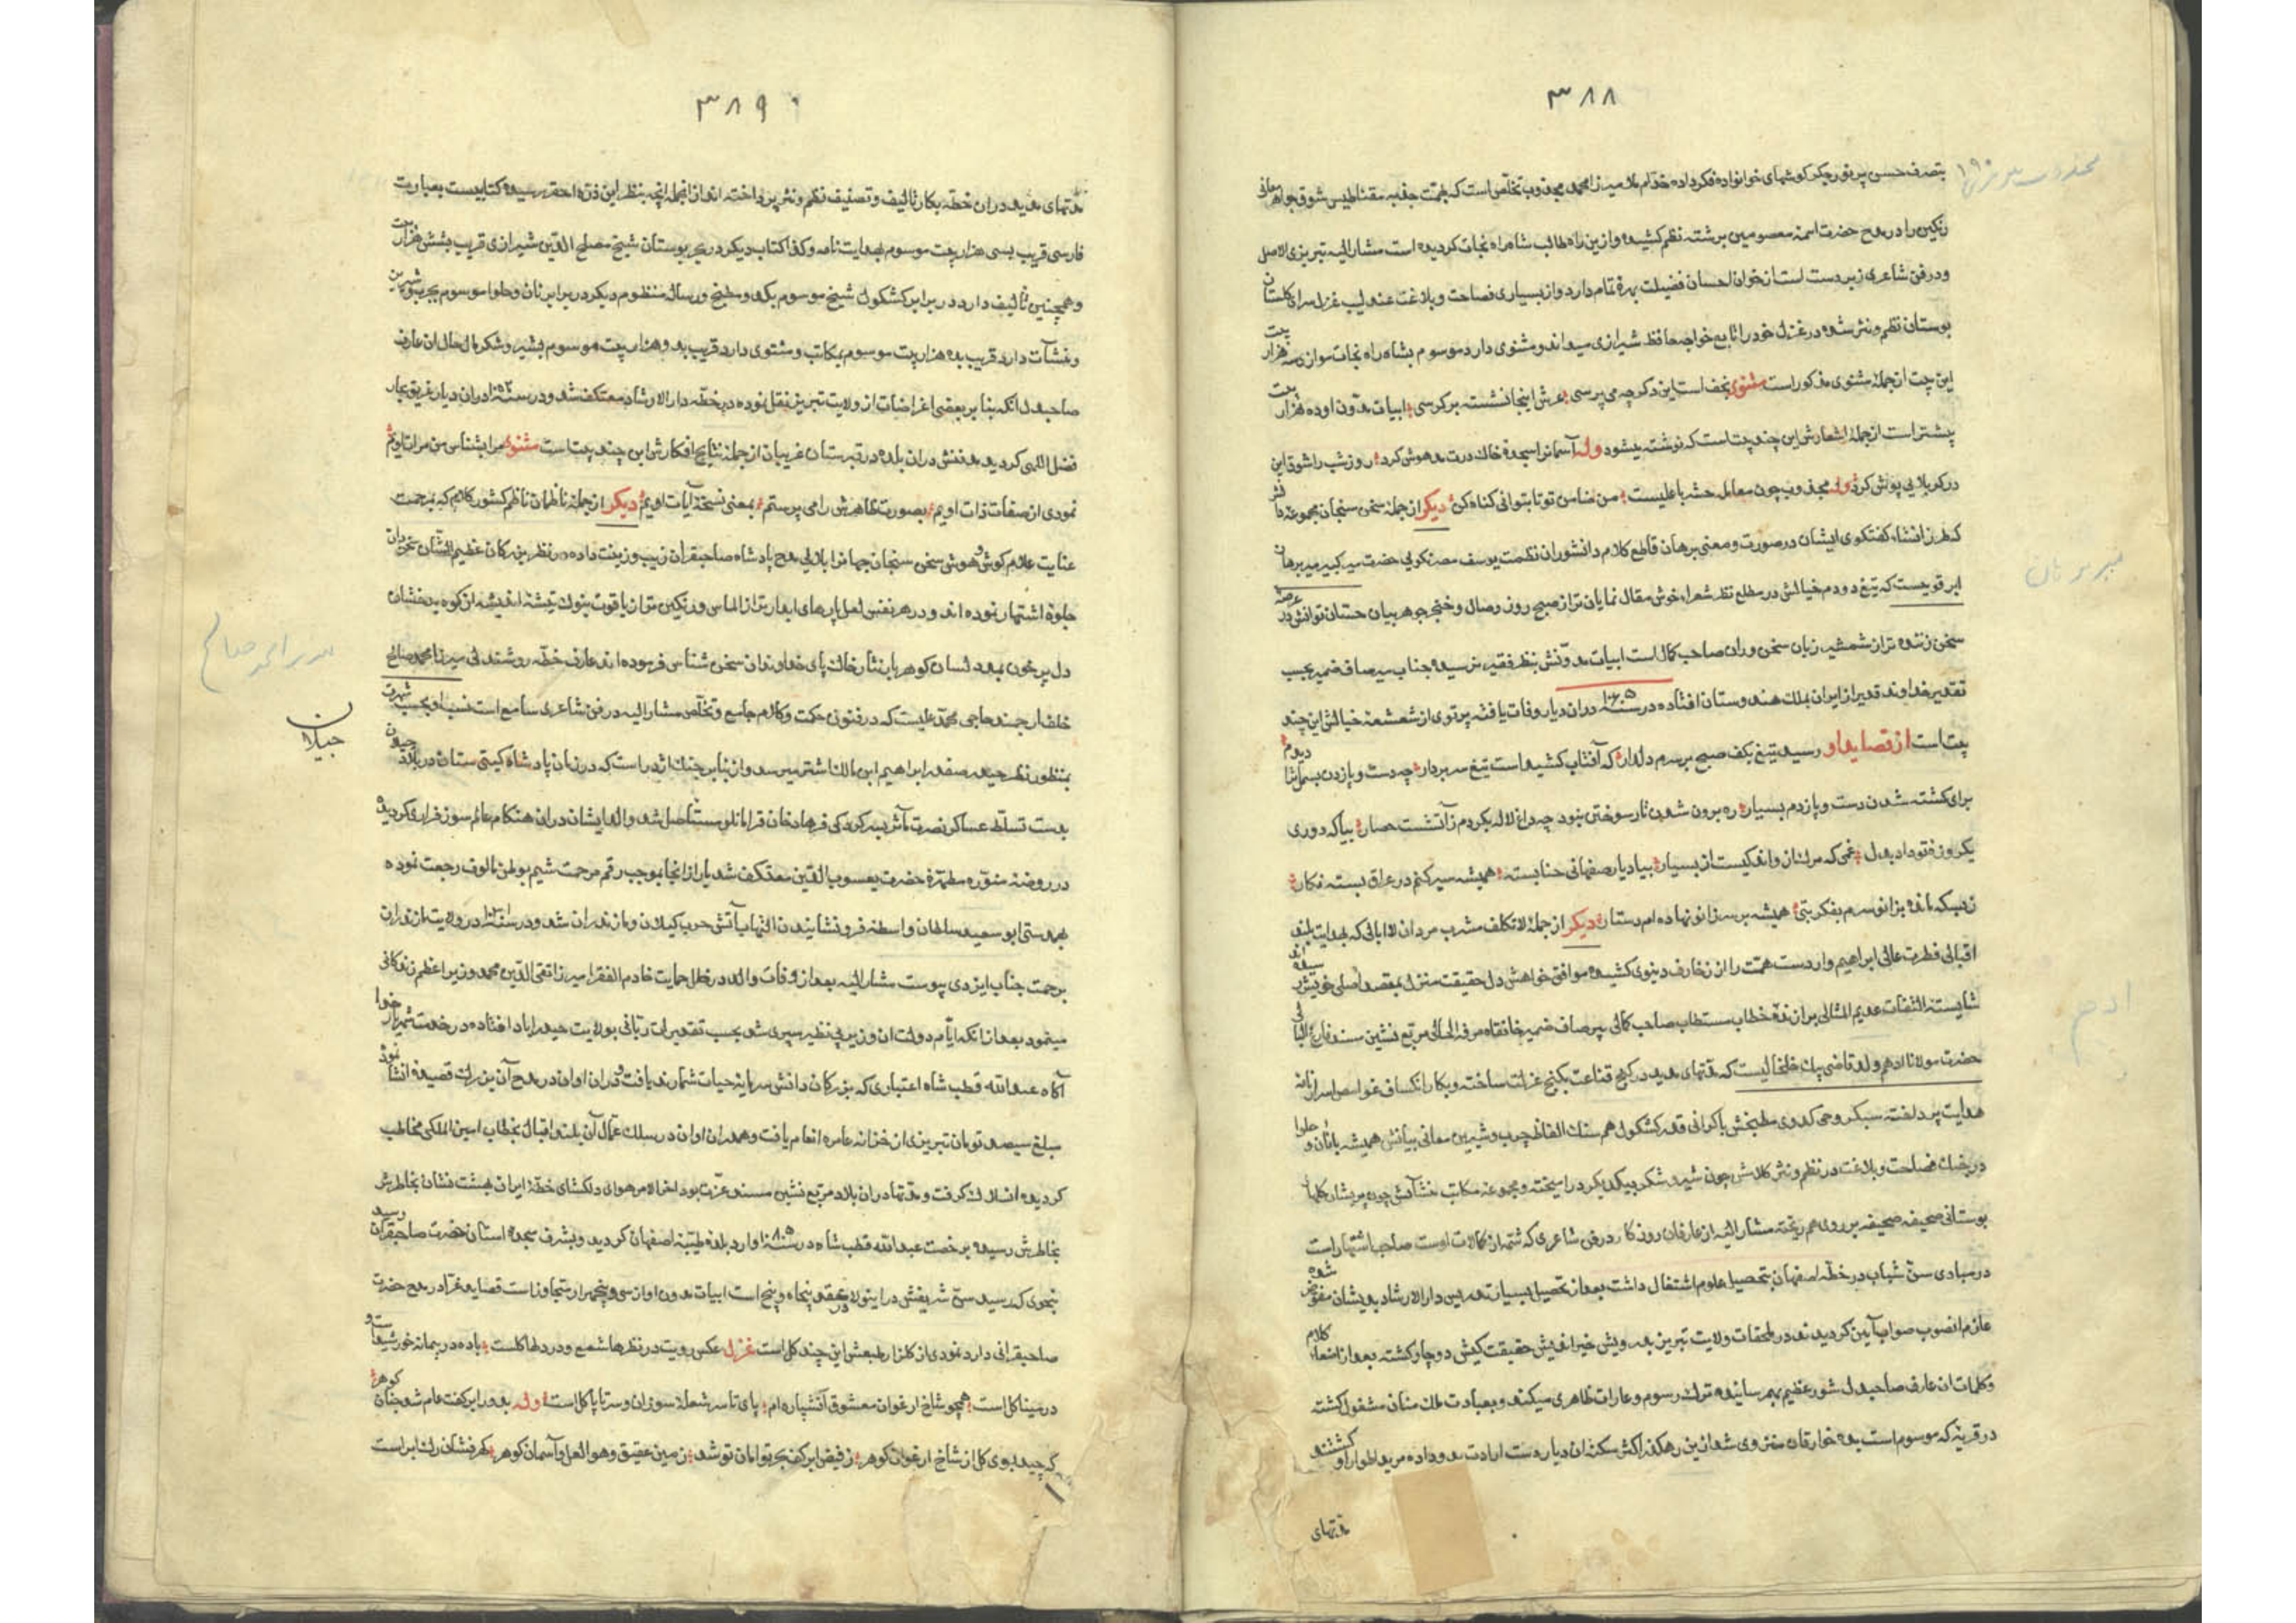 ۳۸۸
بتصرف حسن پرنور جگرگوشهای خوانواده فکر داده خدام ملا میرزا محمد مجذوب تخلص است که بهمت جذبه مقناطیس شوق جواهر معانی
رنگین را در مدح حضرت ائمه معصومین برشته نظم کشیده و ازین راه طالب شاه راه نجات گردیده است مشار الیه تبریزی الاصل
و در فن شاعری زبردست است از خوان احسان فضیلت بهرهٔ تمام دارد و از بسیاری فصاحت و بلاغت عندلیب غزل سرای گلستان
بوستان نظم و نثر شده در غزل خود را تابع خواجه حافظ شیرازی میداند و مثنوی دارد موسوم بشاه راه نجات موازی سه هزار بیت
این بیت از جملهٔ مثنوی مذکور است مثنوی نجف است این دگر چه می پرسی عرش اینجا نشسته بر کرسی ابیات مدون او ده هزار بیت
بیشتر است از جملهٔ اشعارش این چند بیت است که نوشته میشود وله آسمانرا سجدهٔ خاک درت مدهوش کرد روز شب را شوق این
در کربلایی پوش کرد وله مجذوب چون معامله حشر با علیست من ضامن تو تا بتوانی گناه کن دیگر از جملهٔ سخن سنجان مجموعه
که طرز انشاء گفتگوی ایشان در صورت و معنی برهان قاطع کلام دانشوران نظمت یوسف مصر نکویی حضرت میر کبیر میر برهان
ابرقویست که تیغ دودم خیالش در مطلع نظر شعراء خوش مقال نمایان تر از صبح روز وصال و خنجر جوهر بیان
سخن زنده تر از شمشیر زبان سخن وران صاحب کمال است ابیات مدونش بنظر فقیر نرسیده جناب میر صاف ضمیر بحسب
تقدیر خداوند قدیر از ایران بملک هندوستان افتاده در سنه دران دیار وفات یافته پرتوی از شعشعهٔ خیالش این چند
بیت است از قصاید او رسید تیغ بکف صبح بر سرم دلدار که آفتاب کشیده است تیغ سر بردار چه دست و پا زدن بسملانرا دیدم
برای کشته شدن دست و پا زدم بسیار ره برون شدن تار سوختن بنود چه داغ لاله بگردم ز آتشت حصار بیا که دوری
یکروز فتو داد بدل غمی که مرا از وی اندکیست از بسیار بیاد یار صفهانی حنا بسته همیشه سیر کنم در عراق بسته نگار
زبسکه مانده بزانو سرم بفکر بتی همیشه بر سر زانو نهاده ام دستار دیگر از جملهٔ لا تکلف مشرب مردان لاابالی که بهدایت بلند
اقبالی فطرت عالی ابراهیم وار دست همت را از زخارف دنیوی کشیده موافق خواهش دل حقیقت منزل بمقصد اصلی خویش رسیده اند
شایسته التفات عدیم المثالی برازندهٔ خطاب مستطاب صاحب کمالی پیر صاف ضمیر خانقاه مرفه الحالی مربع نشین مسند فارغ البالی
حضرت مولانا ادهم ولد قاضی بیک خلخالیست که مدتهای مدید در کنج قناعت بکنج عزلت ساخته و بکار انکشاف غوامض اسرار نامه
هدایت پرداخته سبکروحی کدوی مطبخش با گرانی قدر کشکول هم سنگ الفاظ چرب و شیرین معانی بیانش همیشه با نان و حلوا
در یخدان فصاحت و بلاغت در نظم و نثر کلامش چون شیر و شکر بیکدیگر در امیخته و مجموعهٔ مکاتب منشآتش چون پریشان گلهای
بوستانی صحیفه صحیفه بر روی هم ریخته مشار الیه از عارفان روزگار در فن شاعری که شمهٔ از کمالات اوست صاحب اشتهار است
در مبادی سن شباب در خطه اصفهان بتحصیل علوم اشتغال داشت بعد از تحصیل بسیار تدریس دار الارشاد بدیشان مفوض شده
عازم انصوب صواب آیین گردیدند در ملحقات ولایت تبریز بدرویش خیر اندیش حقیقت کیش دوچار گشته بعد از استماع کلام
و کلمات ان عارف صاحبدل شور عظیم بهم رسانیده ترک رسوم و عادات ظاهری میکند و بعبادت ملک منان مشغول گشته
در قریهٔ که موسوم است بده خوارقان منزوی شد ازین رهگذر اکثر سکنه ان دیار دست ارادت بدو داده مرید اطوار او گشتند
مدتهای
ادهم
۳۸۹
مدتهای مدید دران خطه بکار تألیف و تصنیف نظم و نثر پرداخته اند از انجمله انچه بنظر این ذرهٔ احقر رسیده کتابیست بعبارت
فارسی قریب بسی هزار بیت موسوم بهدایت نامه و کذا کتاب دیگر در بحر بوستان شیخ مصلح الدین شیرازی قریب بشش هزار بیت
و همچنین تألیف دارد در برابر کشکول شیخ موسوم بکدو مطبخ و رساله منظوم دیگر در برابر نان و حلوا موسوم بچرب و شیرین
و منشآت دارد قریب بده هزار بیت موسوم بمکاتب و مثنوی دارد قریب بدو هزار بیت موسوم بشیر و شکر مال حال ان عارف
صاحبدل انکه بنا بر بعضی اغراضات از ولایت تبریز نقل نموده در خطه دار الارشاد معتکف شد و در سنه دران دیار غریق بحار
فضل اللهی گردید مدفنش دران بلده در قبرستان غریبان از جمله نتایج افکارش این چند بیت است مثنوی مرا بشناس من مرات اویم
نمودی از صفات ذات اویم بصورت ظاهرش را می پرستم بمعنی نسخهٔ آیات اویم دیگر از جمله ناظمان ناظم کشور کلام که بمرحمت
عنایت علام گوش و هوش سخن سنجان جهانرا بلالی مدح پادشاه صاحبقران زیب و زینت داده در نظر بزرگان عظیم الشان سخن دان
جلوهٔ اشتهار نموده اند و در هر نفس لعل پارهای ابدارتر از الماس و رنگین تر از یاقوت بنوک تیشهٔ اندیشه از کوه بدخشان
دل پر خون بمدد لسان گوهر بار نثار خاک پای خداوندان سخن شناس فرموده اند عارف خطه روشندلی میرزا محمد صالح
خلف ارجمند حاجی محمد علیست که در فنون حکت و کلام جامع و تخلص مشار الیه در فن شاعری سامع است نسب او بحسب شهرت
بمنظور نظر حیدر صفدر ابراهیم ابن مالک اشتر میرسد و از بنابر چنگ اژدر است که در زمان پادشاه گیتی ستان در بلاد جیلان
بدست تسلط عساکر نصرت مآثر بسرکردگی فرهاد خان قرامانلو مستأصل شد والد ایشان دران هنگام عالم سوز فراری گردیده
در روضهٔ منوره مطهرهٔ حضرت یعسوب الدین معتکف شد بار از انجا بموجب رقم مرحمت شیم بوطن مالوف رجعت نموده
بهمدستی ابو سعید سلطان واسطهٔ فرو نشانیدن التهاب آتش حرب گیلان و مازندران شد و در سنه در ولایت مازندران
برحمت جناب ایزدی پیوست مشار الیه بعد از وفات والد در ظل حمایت خادم الفقرا میرزا تقی الدین محمد وزیر اعظم زندگانی
مینمود بعد از انکه ایام دولت ان وزیر بی نظیر سپری شد بحسب تقدیرات ربانی بولایت حیدراباد افتاده در خدمت شهریار
آگاه عبد الله قطب شاه اعتباری که بزرگان دانش سرمایهٔ حیات شمارند یافت و دران اوان در مدح آن بزرگ قصیدهٔ انشا نمود
مبلغ سیصد تومان تبریزی از خزانه عامره انعام یافت و همدران اوان در سلک عمال آن بلند اقبال بخطاب امین الملکی مخاطب
گردیده انسلاک گرفت و مدتها دران بلاد مربع نشین مسند عزت بود اخر الامر هوای دلگشای خطهٔ ایران بهشت نشان بخاطرش
بخاطرش رسیده برخصت عبد الله قطب شاه در سنه وارد بلدهٔ طیبهٔ اصفهان گردید و بشرف سجدهٔ استان حضرت صاحبقران رسید
سن شریفش در اینولا در عقد پنجاه و پنج است ابیات مدون او از سی و پنجهزار متجاوز است قصاید غرا در مدح حضرت
صاحبقرانی دارد نمودی از گلزار طبعش این چند گل است غزل عکس رویت در نظرها شمع و در دلها گلست باده در پیمانه خورشید است و
در مینا گل است همچو شاخ ارغوان معشوق آتشپاره ام پای تا سر شعلهٔ سوزان و سر تا پا گل است وله بدور ابر کفت عام شد چنان گوهر
که چید بوی گل از شاخ ارغوان گوهر ز فیض ابر کف بحر توامان تو شد زمین عقیق و هوا لعل و آسمان گوهر
جیلان